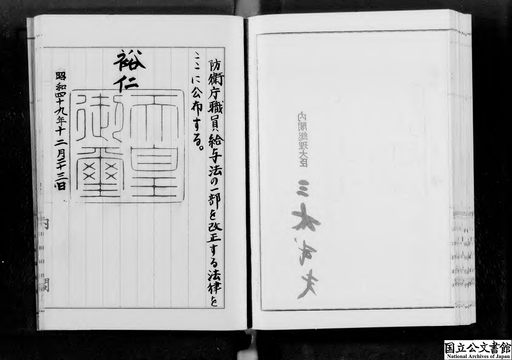 内閣総理大臣 三木武夫
防衛庁職員給与法の一部を改正する法律を
ここに公布する。
裕仁
天皇御璽
昭和四十九年十二月二十三日
内閣
国立公文書館
National Archives of Japan